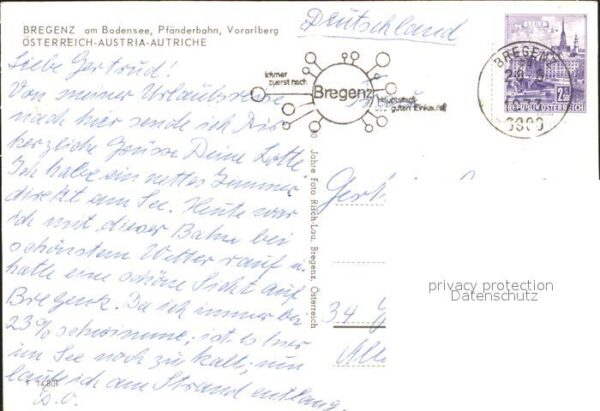 BREGENZ am Bodensee, Pfänderbahn, Vorarlberg
ÖSTERREICH-AUSTRIA-AUTRICHE
Deutschland
Liebe Gertrud!
Von meiner Urlaubsreise
nach hier sende ich Dir
herzliche Grüsse Deine Lotte,
Ich habe ein nettes Zimmer
direkt am See. Heute war
ich mit dieser Bahn bei
schönstem Wetter rauf u.
hatte eine schöne Sicht auf
Bregenz. Da ich immer bei
23% schwimme, ist es hier
im See noch zu kalt, nun
laufe ich am Strand entlang.
D.O.
Immer
zuerst nach
Bregenz
guten Einkauf
BREGENZ
6900
REPUBLIK ÖSTERREICH
Jahre Foto Risch-Lau, Bregenz, Österreich
34 G
privacy protection
Datenschutz